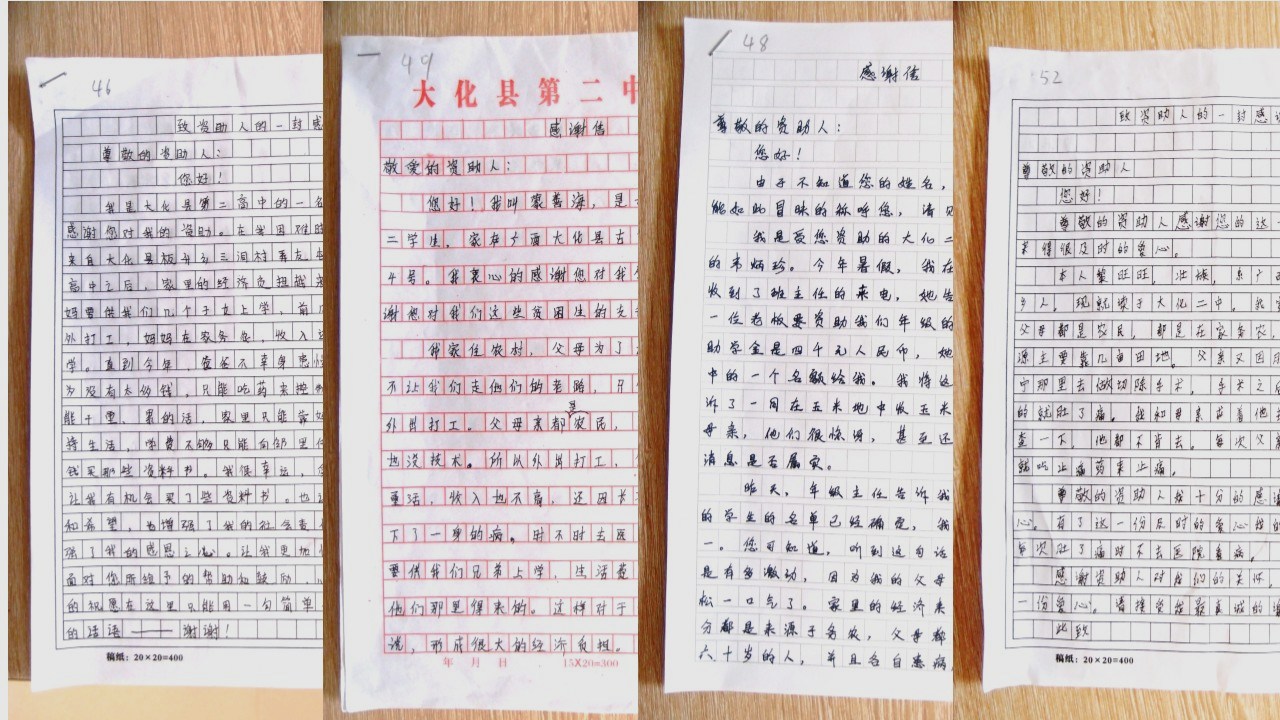 46
致资助人的一封感
尊敬的资助人:
您好!
我是大化县第二高中的一名
感谢您对我的资助。在我困难时
来自大化县板升乡三洞村弄友
高中之后,家里的经济负担越来
妈要供我们几个子女上学,前
外打工,妈妈在家务农,收入
学。直到今年,爸爸不幸身患
多没有太多钱,只能吃药来控制
能干重、累的活。家里只能靠
持生活,学费不够只能向邻里借
钱买那些资料书。我很幸运,
让我有机会买了些资料书。也
和希望,也增强了我的社会责
强了我的感恩之心。让我更加
面对您所给予的帮助和鼓励,
的祝愿在这里只能用一句简单
的话语——谢谢!
稿纸:20×20=400
49
大化县第二中
感谢信
敬爱的资助人:
您好!我叫蒙善海,是
二学生。家在广西大化县古
4号。我衷心的感谢您对我
谢您对我们这些贫困生的支
我家住农村,父母为了
不让我们走他们的老路,只
外出打工。父母亲都是农民,
也没技术。所以外出打工,
重活,收入也不高,还因长
下了一身的病。时不时去医
要供我们兄弟上学,生活费
他们那里得来的。这样对于
说,形成很大的经济负担。
年 月 日 15×20=300
48
感谢信
尊敬的资助人:
您好!
由于不知道您的姓名,
能如此冒昧的称呼您,请见
我是受您资助的大化二
的韦炳珍。今年暑假,我在
收到了班主任的来电,她告
一位老板要资助我们年级的
助学金是四千元人民币,她
中的一个名额给我。我将这
诉了一同在玉米地中收玉米
母亲,他们很惊讶,甚至还
消息是否属实。
昨天,年级主任告诉我
的学生的名单已经确定,我
一。您可知道,听到这句话
是有多激动,因为我的父母
松一口气了。家里的经济来
分都是来源于务农,父母都
六十岁的人,并且各自患病
52
致资助人的一封感谢
尊敬的资助人
您好!
尊敬的资助人感谢您的这
来得很及时的爱心。
本人蒙旺旺,壮族,系广
乡人。现就读于大化二中。我
父母都是农民,都是在家务农,
源主要靠几亩田地。父亲又因
中那里去做切除手术,手术之
的就肚子痛。我和母亲劝着他
查一下,他都不肯去。每次父
就吃止痛药来止痛。
尊敬的资助人我十分的感
心。有了这一份及时的爱心
每次肚子痛时不去医院看病。
感谢资助人对我们的关怀,
一份爱心。请接受我最真诚的
此致
稿纸:20×20=400